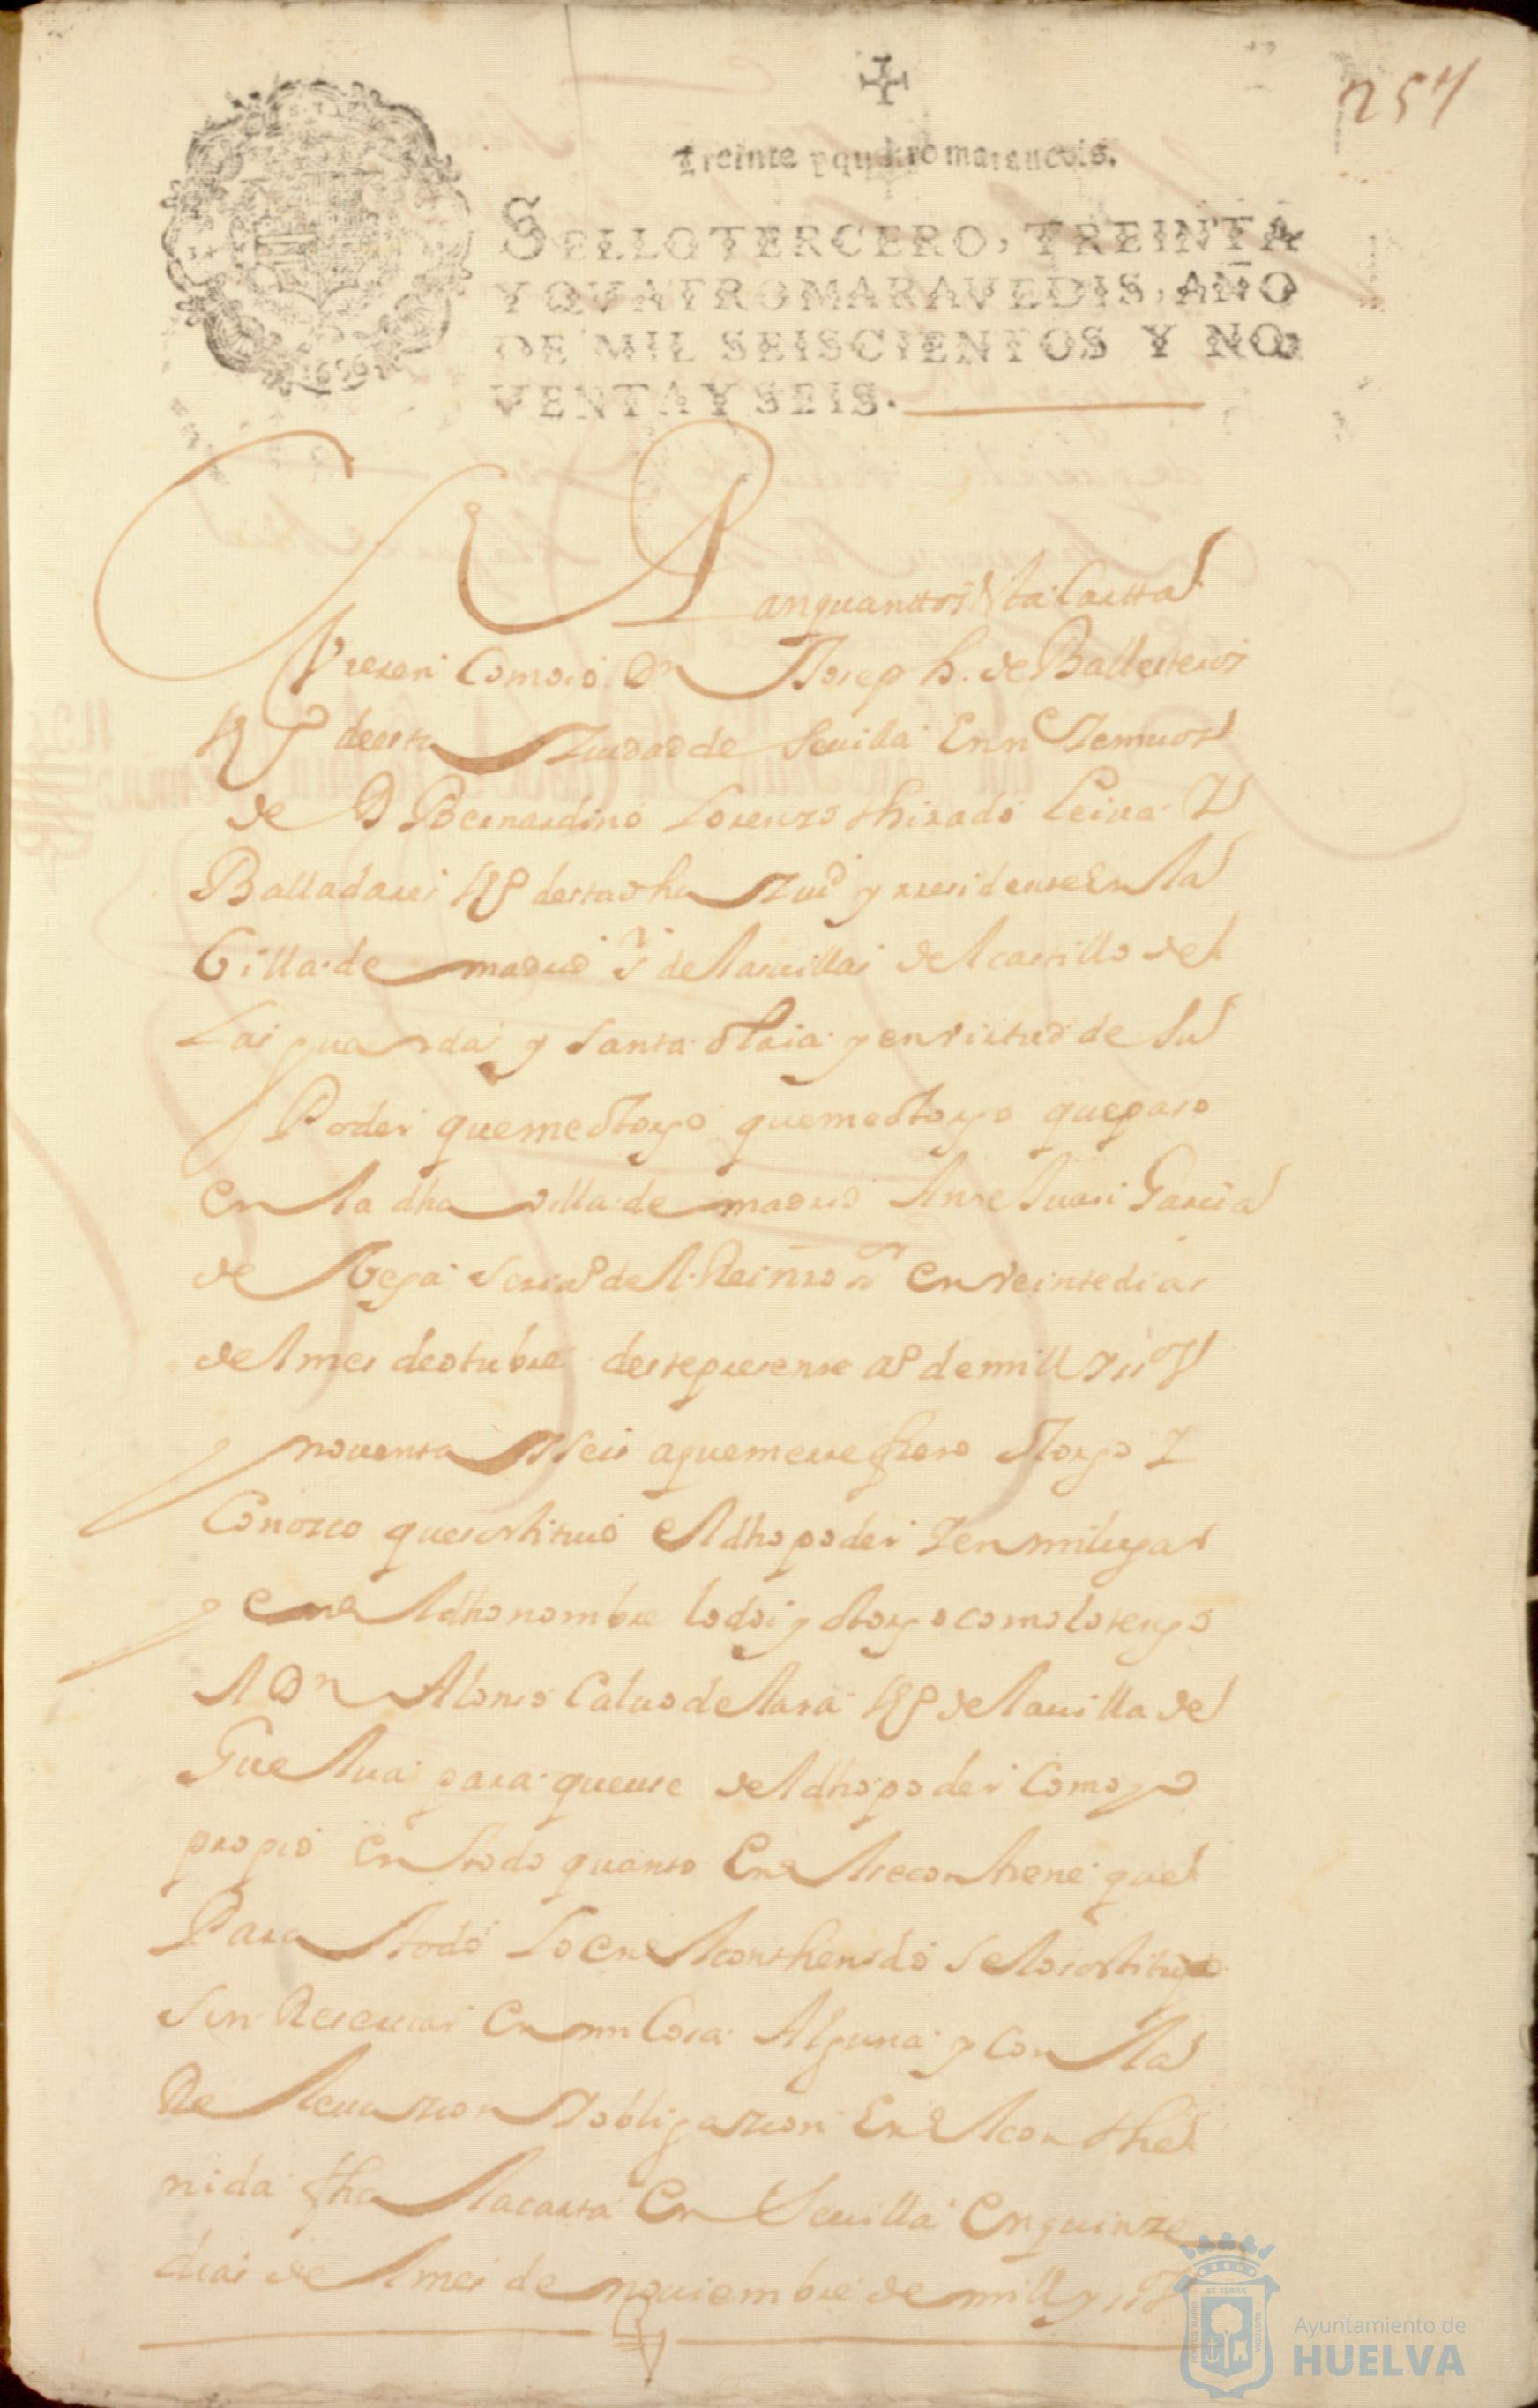 257
Treinta y quatro maravedis.
SELLO TERCERO, TREINTA
Y QVATRO MARAVEDIS, AÑO
DE MIL SEISCIENTOS Y NO-
VENTA Y SEIS.
1696
Sepan quanttos esta Cartta
Vieren Como io Dn Joseph de Ballesteros
Vº desta Ziudad de Seuilla En n
de D Bernardino Lorenzo thirado Leiua Y
Balladares Vº desta dha Ziud y rresidente En la
Villa de madrid Sr de las uillas del castillo de
Las guardas y Santa olaia y en virtud de su
Poder que me otorgo que me otorgo que paso
en la dha villa de madrid Ante Juan Garcia
de Vega scriuº del Rei nro sr en veinte dias
del mes de otubre deste presente aº de mill y
y nouenta Y Seis a que me refiero otorgo Y
Conozco que sostituio el dho poder Y en mi lugar
y en el dho nombre lo doi y otorgo como lo tengo
A Dn Alonso Caluo de lara Vº de la uilla de
Guelua para que use del dho poder Como yo
propio en todo quanto En el se contiene que
Para todo Lo en el conthenido se lo sostituyo
sin Reseruar en mi Cosa Alguna y con la
Releuazion Y obligazion En el conthe
nida fha la carta En Seuilla En quinze
dias del mes de nouiembre de mill y
Ayuntamiento de
HUELVA